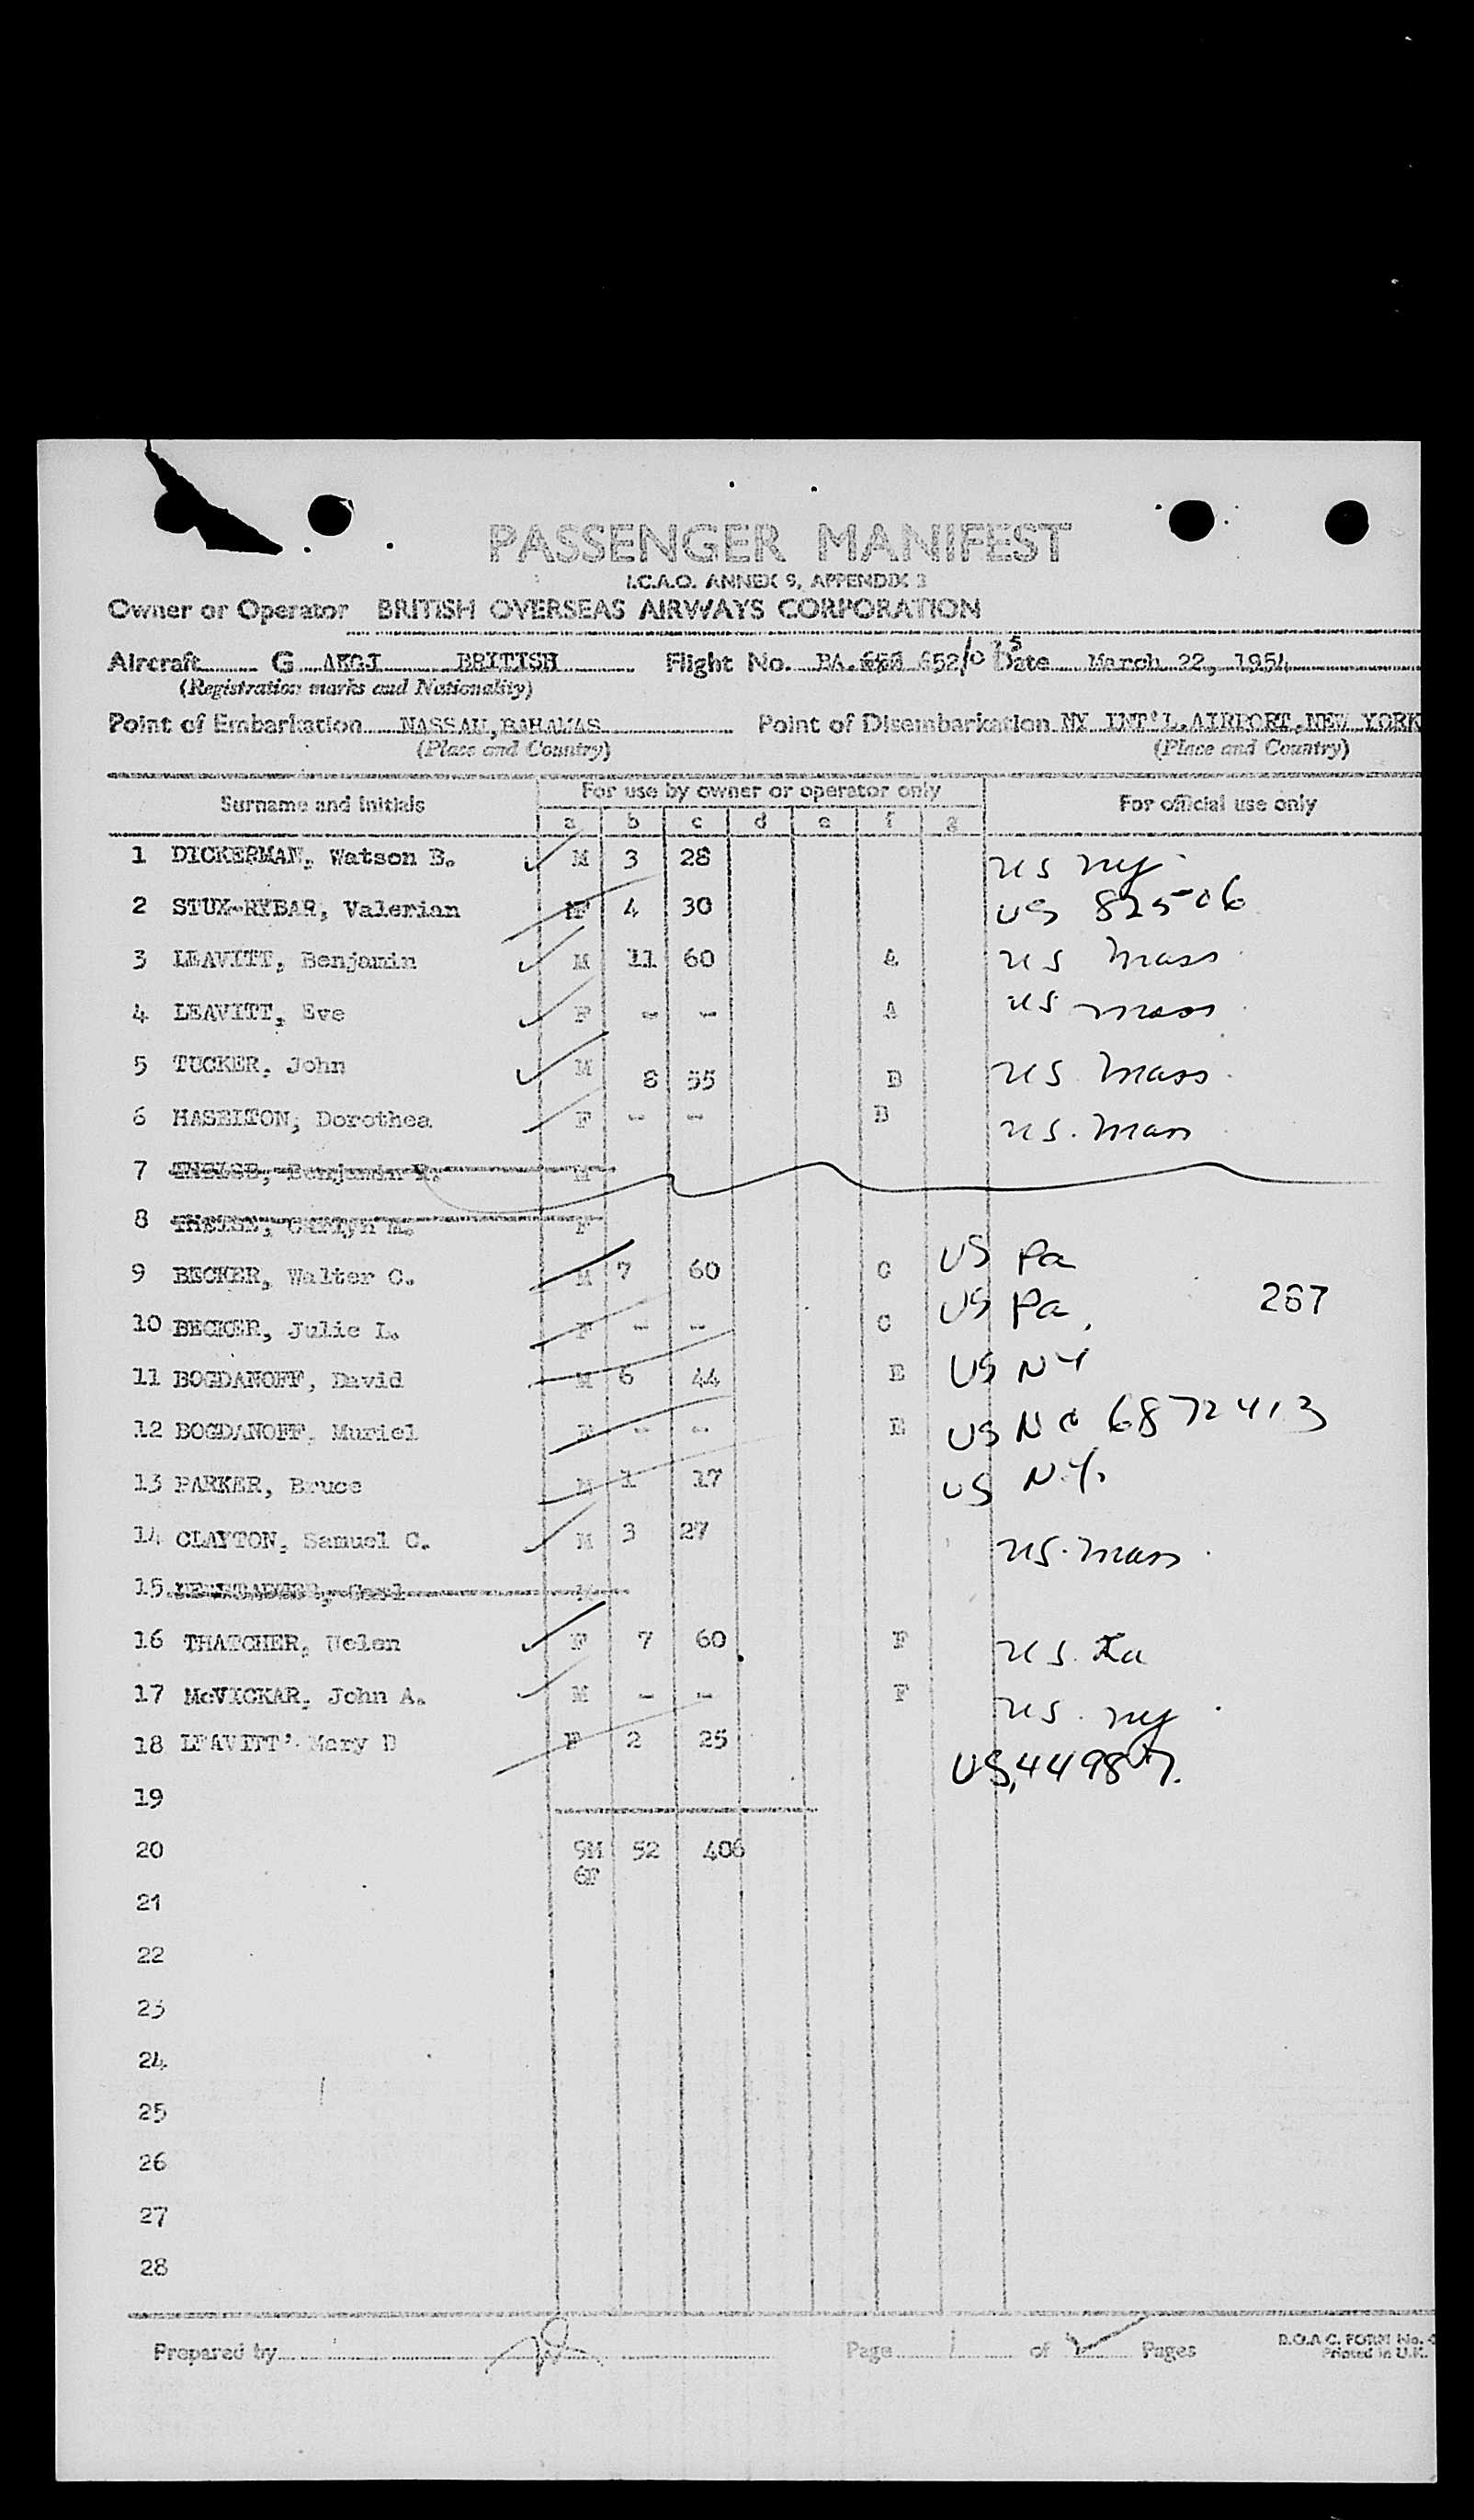 PASSENGER MANIFEST
I.C.A.O. ANNEX 9, APPENDIX 3
Owner or Operator BRITISH OVERSEAS AIRWAYS CORPORATION
Aircraft G AKGJ BRITISH Flight No. BA. 652/ Date March 22, 1954
(Registration marks and Nationality)
Point of Embarkation NASSAU, BAHAMAS Point of Disembarkation NY INT'L. AIRPORT, NEW YORK
(Place and Country) (Place and Country)
Surname and Initials For use by owner or operator only For official use only
a b c d e f g
1 DICKERMAN, Watson B. M 3 28 US NY
2 STUX-RYBAR, Valerian M 4 30 US 82506
3 LEAVITT, Benjamin M 11 60 A US Mass
4 LEAVITT, Eve F - - A US Mass
5 TUCKER, John M 8 55 B US Mass
6 HASEITON, Dorothea F - - B US. Mass
7 Benjamin M
8 F
9 BECKER, Walter C. M 7 60 C US Pa
10 BECKER, Julie L. F - - C US Pa, 267
11 BOGDANOFF, David M 6 44 E US NY
12 BOGDANOFF, Muriel F - - E US No 6872413
13 PARKER, Bruce M 1 17 US N.Y.
14 CLAYTON, Samuel C. M 3 27 US. Mass
15 M
16 THATCHER, Helen F 7 60 F US.
17 McVICKAR, John A. M - - F US. NY
18 LEAVITT' Mary D F 2 25 US,
19
20 9M 52 406
6F
21
22
23
24
25
26
27
28
Prepared by Page 1 of Pages B.O.A.C. FORM No.
Printed in U.K.